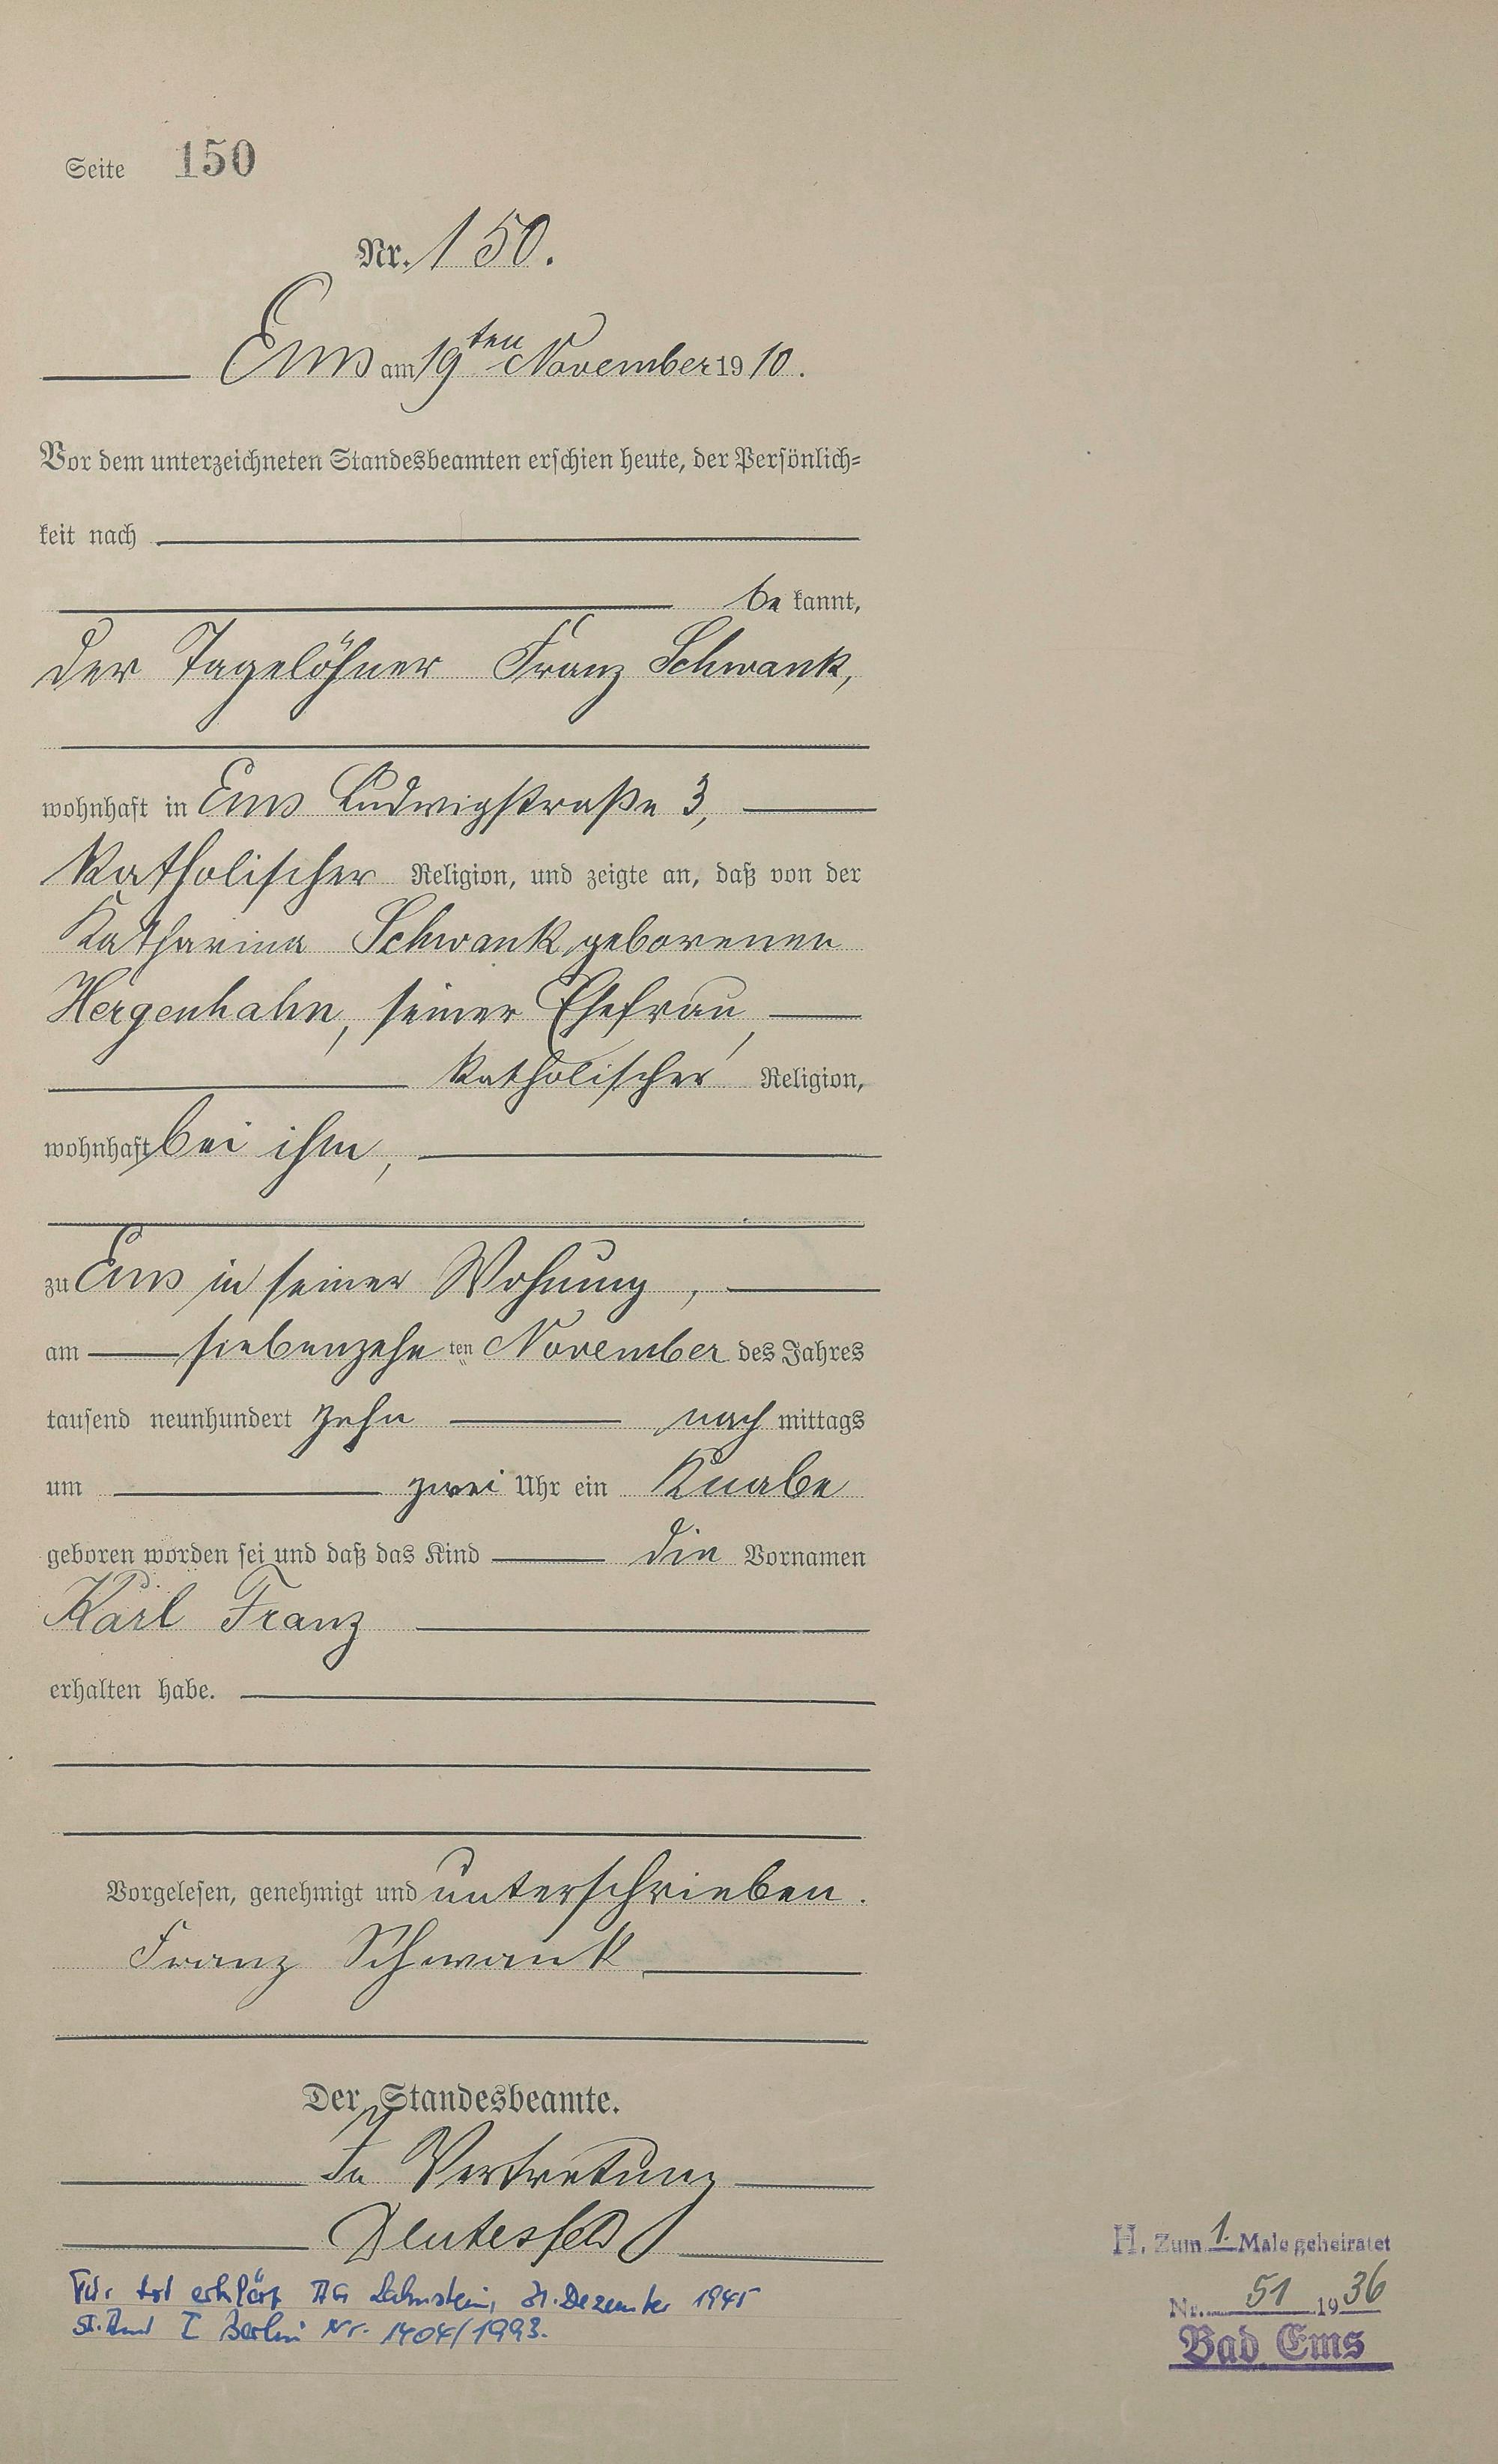 Seite 150
Nr. 150.
Ems am 19ten November 1910.
Vor dem unterzeichneten Standesbeamten erschien heute, der Persönlich=
keit nach
be kannt,
der Tagelöhner Franz Schwank,
wohnhaft in Ems Ludwigstraße 3,
katholischer Religion, und zeigte an, daß von der
Katharina Schwank geborenen
Hergenhahn, seiner Ehefrau,
katholischer Religion,
wohnhaft bei ihm,
zu Ems in seiner Wohnung,
am siebenzehn ten November des Jahres
tausend neunhundert zehn nach mittags
um zwei Uhr ein Knabe
geboren worden sei und daß das Kind die Vornamen
Karl Franz
erhalten habe.
Vorgelesen, genehmigt und unterschrieben.
Franz Schwank
Der Standesbeamte.
In Vertretung
Für tot erklärt AG Lahnstein, 31. Dezember 1945
St. Amt I Berlin Nr. 1404/1993.
H. Zum 1. Male geheiratet
Nr. 51 1936
Bad Ems